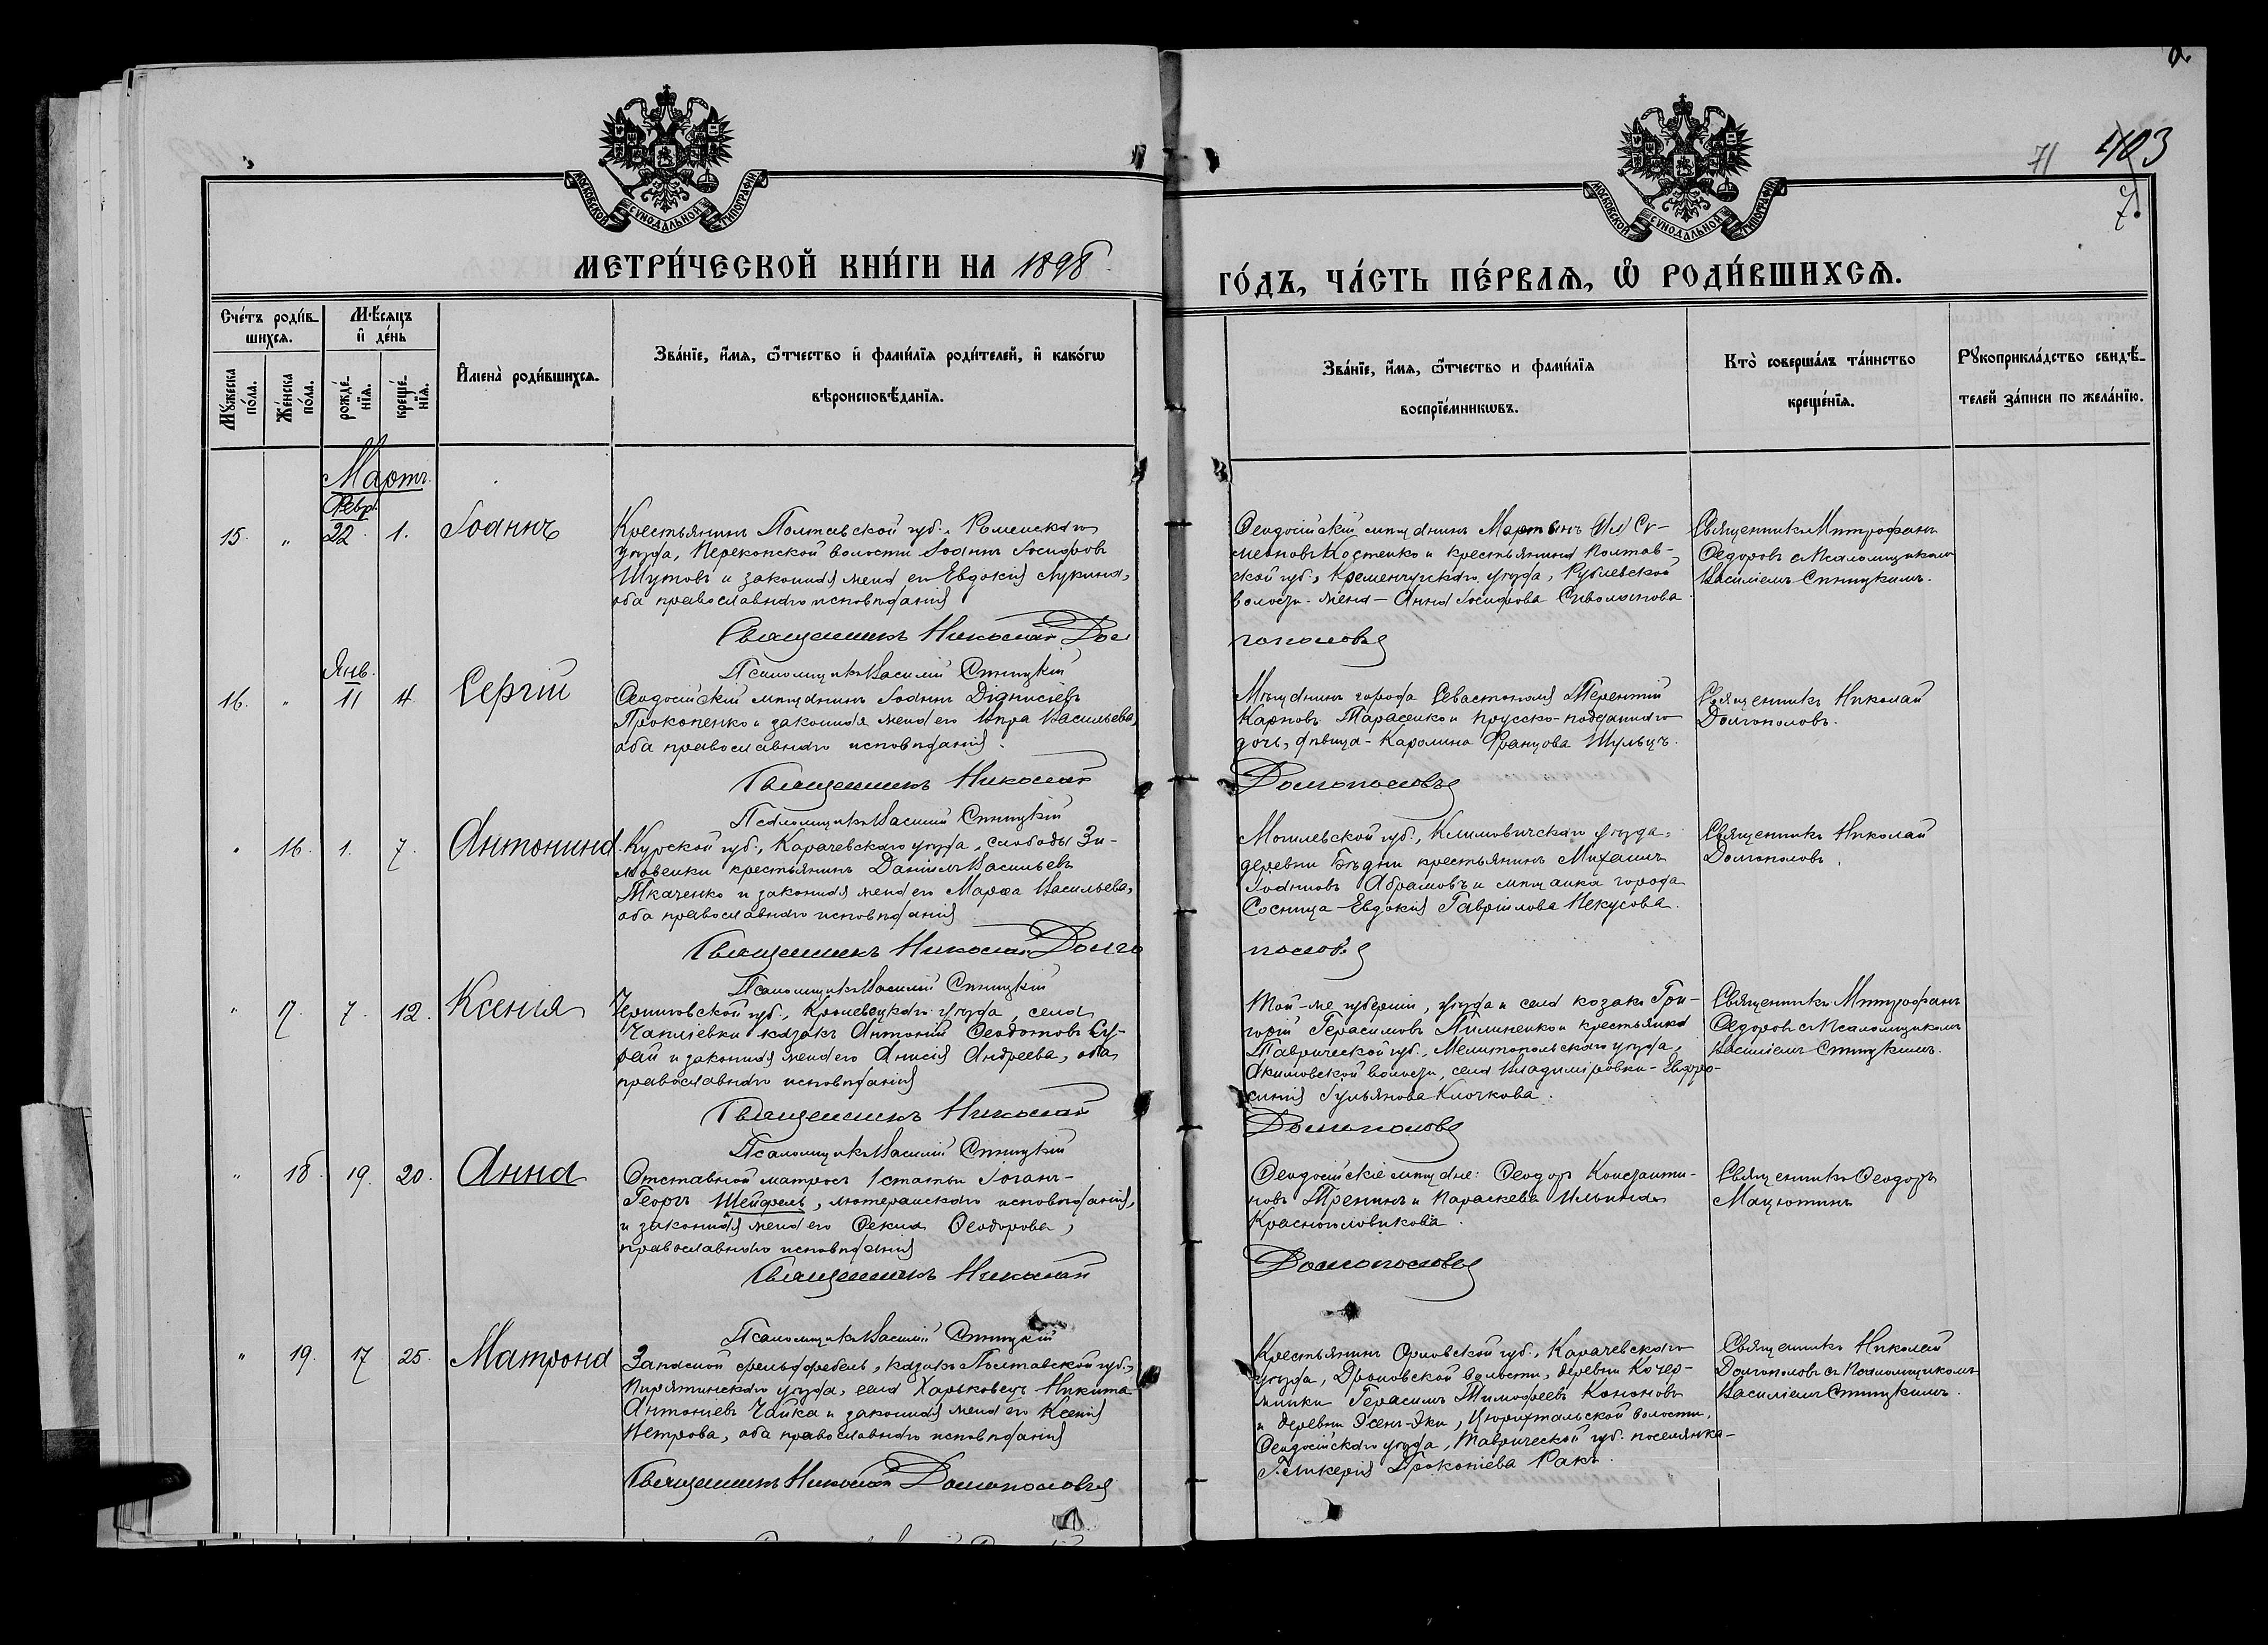 71 403
7.
МОСКОВСКОЙ СѴНОДАЛЬНОЙ ТИПОГРАФІИ
МОСКОВСКОЙ СѴНОДАЛЬНОЙ ТИПОГРАФІИ
МЕТРИ́ЧЕСКОЙ КНИ́ГИ НА 1898
ГО́ДЪ, ЧА́СТЬ ПЕ́РВАѦ, Ѡ҆ РОДИ́ВШИХСѦ.
Сче́тъ роди́в-
шихсѧ.
Мѣ́сѧцъ
и҆ де́нь
Мꙋ́жеска
по́ла.
Же́нска
по́ла.
рожде́-
нїѧ.
креще́-
нїѧ.
И҆мена̀ роди́вшихсѧ.
Зва́нїе, и҆́мѧ, ѻ҆́тчество и҆ фами́лїѧ роди́телей, и҆ како́гѡ
вѣроисповѣ́данїѧ.
Зва́нїе, и҆́мѧ, ѻ҆́тчество и фами́лїѧ
воспрїе́мникѡвъ.
Кто̀ соверша́лъ та́инство
креще́нїѧ.
Рꙋкоприкла́дство свидѣ́-
телей за́писи по жела́нїю.
Мартъ.
Февр.
15. " 22. 1. Іоаннъ
Крестьянинъ Полтавской губ., Роменскаго
уѣзда, Перекопской волости Іоаннъ Іосифовъ
Шутовъ и законная жена его Евдокія Лукина,
оба православнаго исповѣданія
Священникъ Николай Дол
гополовъ
Псаломщикъ Василій Спицкій
Ѳеодосійскій мѣщанинъ Мартинъ Си-
меоновъ Костенко и крестьянина Полтав-
ской губ., Кременчугскаго уѣзда,
волости жена - Анна Іосифова
Священникъ Митрофанъ
Ѳедоровъ с Псаломщикомъ
Василіемъ Спицкимъ.
Янв.
16. " 11 4 Сергій
Ѳеодосійскій мѣщанинъ Іоаннъ Діонисіевъ
Прокопенко и законная жена его Васильева,
оба православнаго исповѣданія.
Священникъ Николай
Долгополовъ
Псаломщикъ Василій Спицкій
Мѣщанинъ города Севастополя Терентій
Карповъ Тарасенко и прусско-подданнаго
дочь, дѣвица - Каролина Францова Шульцъ.
Священникъ Николай
Долгополовъ.
" 16. 1. 7. Антонина
Курской губ., уѣзда, слободы Зи-
новенки крестьянинъ Даніилъ Васильевъ
Ткаченко и законная жена его Марѳа Васильева,
оба православнаго исповѣданія
Священникъ Николай Долго
половъ
Псаломщикъ Василій Спицкій
Могилевской губ., Климовичскаго уѣзда,
деревни крестьянинъ Михаилъ
Іоанновъ Абрамовъ и мѣщанка города
Сосница Евдокія Гавріилова Некусова.
Священникъ Николай
Долгополовъ.
" 17. 7. 12. Ксенія
Черниговской губ., Кролевецкаго уѣзда, села
Чапліевки казакъ Антоній Ѳеодотовъ
и законная жена его Анисія Андреева, оба
православнаго исповѣданія
Священникъ Николай
Долгополовъ
Псаломщикъ Василій Спицкій
Той-же губерніи, уѣзда и села козакъ Гри-
горій Герасимовъ Пилипенко и крестьянка
Таврической губ., Мелитопольскаго уѣзда,
Акимовской волости, села Владиміровки - Евфро-
синія Іульянова Клочкова.
Священникъ Митрофанъ
Ѳедоровъ с Псаломщикомъ
Василіемъ Спицкимъ.
" 18. 19. 20. Анна
Отставной матросъ 1 статьи Іоганъ-
Георгъ Шейфель, лютеранскаго исповѣданія,
и законная жена его Ѳекла Ѳеодорова,
православнаго исповѣданія
Священникъ Николай
Долгополовъ
Псаломщикъ Василій Спицкій
Ѳеодосійскіе мѣщане: Ѳеодоръ Константи-
новъ Тренинъ и Параскева Ильина
Красноголовикова.
Священникъ Ѳеодоръ
Мацютинъ
" 19. 17 25. Матрона
Запасной фельдфебель, казакъ Полтавской губ.,
Пирятинскаго уѣзда, села Харьковецъ Никита
Антоніевъ Чайка и законная жена его Ксенія
Петрова, оба православнаго исповѣданія
Священникъ Николай Долгополовъ
Крестьянинъ Орловской губ., Карачевскаго
уѣзда, Дроновской волости, деревни
Герасимъ Тимоѳеевъ Кононовъ
и деревни Цюрихтальской волости,
Ѳеодосійскаго уѣзда, Таврической губ. поселянка-
Гликерія Прокопіева Ракъ.
Священникъ Николай
Долгополовъ съ Псаломщикомъ
Василіемъ Спицкимъ.